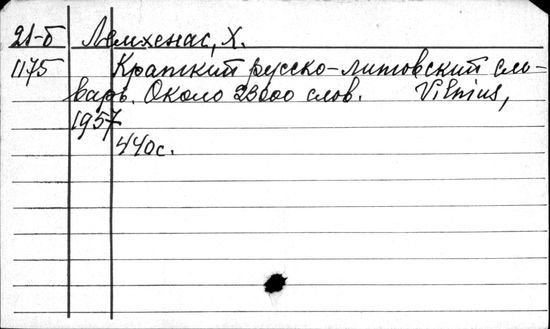 21-б Лемхенас, Х.
1175 Краткий русско-литовский сло-
варь. Около 23000 слов. Vilnius,
1957
440с.